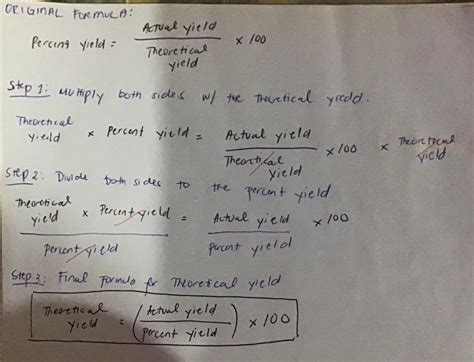 ORIGINAL FORMULA:
Percent yield = Actual yield / Theoretical yield × 100
Step 1: Multiply both sides w/ the theoretical yield.
Theoretical yield × Percent yield = Actual yield / Theoretical yield × 100 × Theoretical yield
Step 2: Divide both sides to the percent yield
Theoretical yield × Percent yield / Percent yield = Actual yield / percent yield × 100
Step 3: Final Formula for Theoretical yield
Theoretical yield = (Actual yield / percent yield) × 100